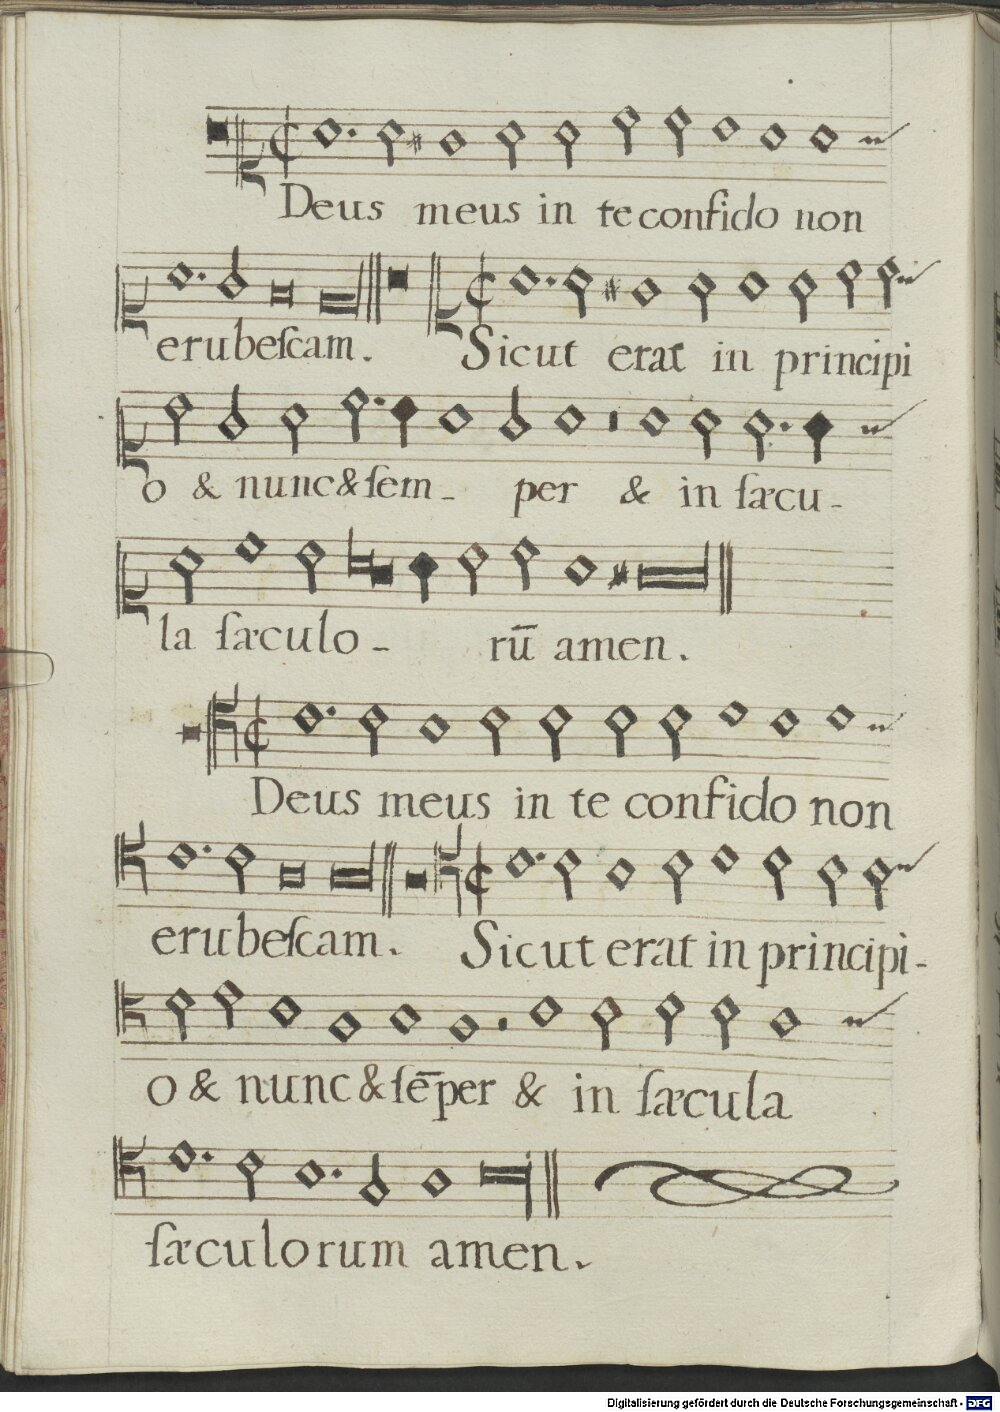 Deus meus in te confido non
erubeſcam. Sicut erat in principi
o & nunc & ſem- per & in ſæcu-
la ſæculo- rū amen.
Deus meus in te confido non
erubeſcam. Sicut erat in principi-
o & nunc & ſēper & in ſæcula
ſæculorum amen.
Digitalisierung gefördert durch die Deutsche Forschungsgemeinschaft - DFG